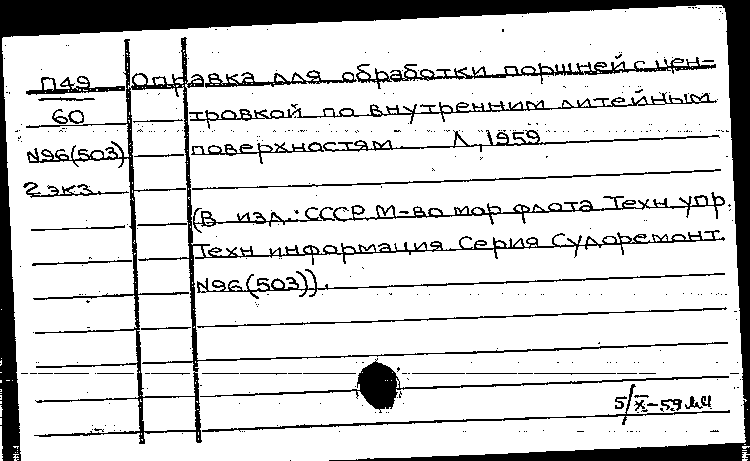 П49 Оправка для обработки поршней с цен-
60 тровкой по внутренним литейным
N96(503) поверхностям. Л, 1959
2 экз.
(В изд.: СССР. М-во мор флота. Техн. упр.
Техн информация. Серия Судоремонт.
N96(503)).
5/X-59